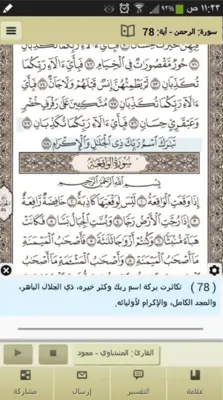 ١١:٢٣ ص
سورة: الرحمن - آية: 78
حُورٌ مَّقْصُورَاتٌ فِي الْخِيَامِ ﴿٧٢﴾ فَبِأَيِّ آلَاءِ رَبِّكُمَا
تُكَذِّبَانِ ﴿٧٣﴾ لَمْ يَطْمِثْهُنَّ إِنسٌ قَبْلَهُمْ وَلَا جَانٌّ ﴿٧٤﴾
فَبِأَيِّ آلَاءِ رَبِّكُمَا تُكَذِّبَانِ ﴿٧٥﴾ مُتَّكِئِينَ عَلَىٰ رَفْرَفٍ خُضْرٍ
وَعَبْقَرِيٍّ حِسَانٍ ﴿٧٦﴾ فَبِأَيِّ آلَاءِ رَبِّكُمَا تُكَذِّبَانِ ﴿٧٧﴾
تَبَارَكَ اسْمُ رَبِّكَ ذِي الْجَلَالِ وَالْإِكْرَامِ ﴿٧٨﴾
سُورَةُ الوَاقِعَةِ
بِسْمِ اللَّهِ الرَّحْمَٰنِ الرَّحِيمِ
إِذَا وَقَعَتِ الْوَاقِعَةُ ﴿١﴾ لَيْسَ لِوَقْعَتِهَا كَاذِبَةٌ ﴿٢﴾ خَافِضَةٌ رَّافِعَةٌ ﴿٣﴾
إِذَا رُجَّتِ الْأَرْضُ رَجًّا ﴿٤﴾ وَبُسَّتِ الْجِبَالُ بَسًّا ﴿٥﴾ فَكَانَتْ
هَبَاءً مُّنبَثًّا ﴿٦﴾ وَكُنتُمْ أَزْوَاجًا ثَلَاثَةً ﴿٧﴾ فَأَصْحَابُ الْمَيْمَنَةِ
مَا أَصْحَابُ الْمَيْمَنَةِ ﴿٨﴾
(78) تكاثرت بركة اسم ربك وكثر خيره، ذي الجلال الباهر،
والمجد الكامل، والإكرام لأوليائه.
القارئ: المنشاوي - مجود
علامة
التفسير
إرسال
مشاركة